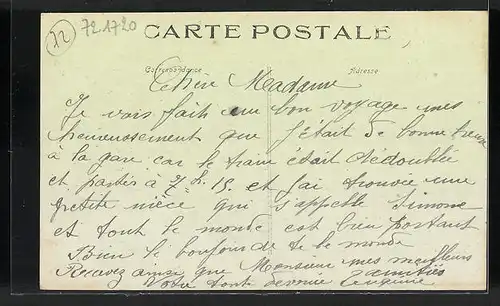 72
721720
CARTE POSTALE
Correspondance
Adresse
Chère Madame
Je vais fait un bon voyage mes
heureusement que j'était de bonne heure
à la gare car le train était dédoublé
et parties à 7h.15. et j'ai trouvée une
petite nièce qui s'appelle Simone
et tout le monde est bien portant
Bien le bonjour de tt le monde
Recevez ainsi que Monsieur mes meilleurs
amitiés
Votre toute dévouée Eugénie